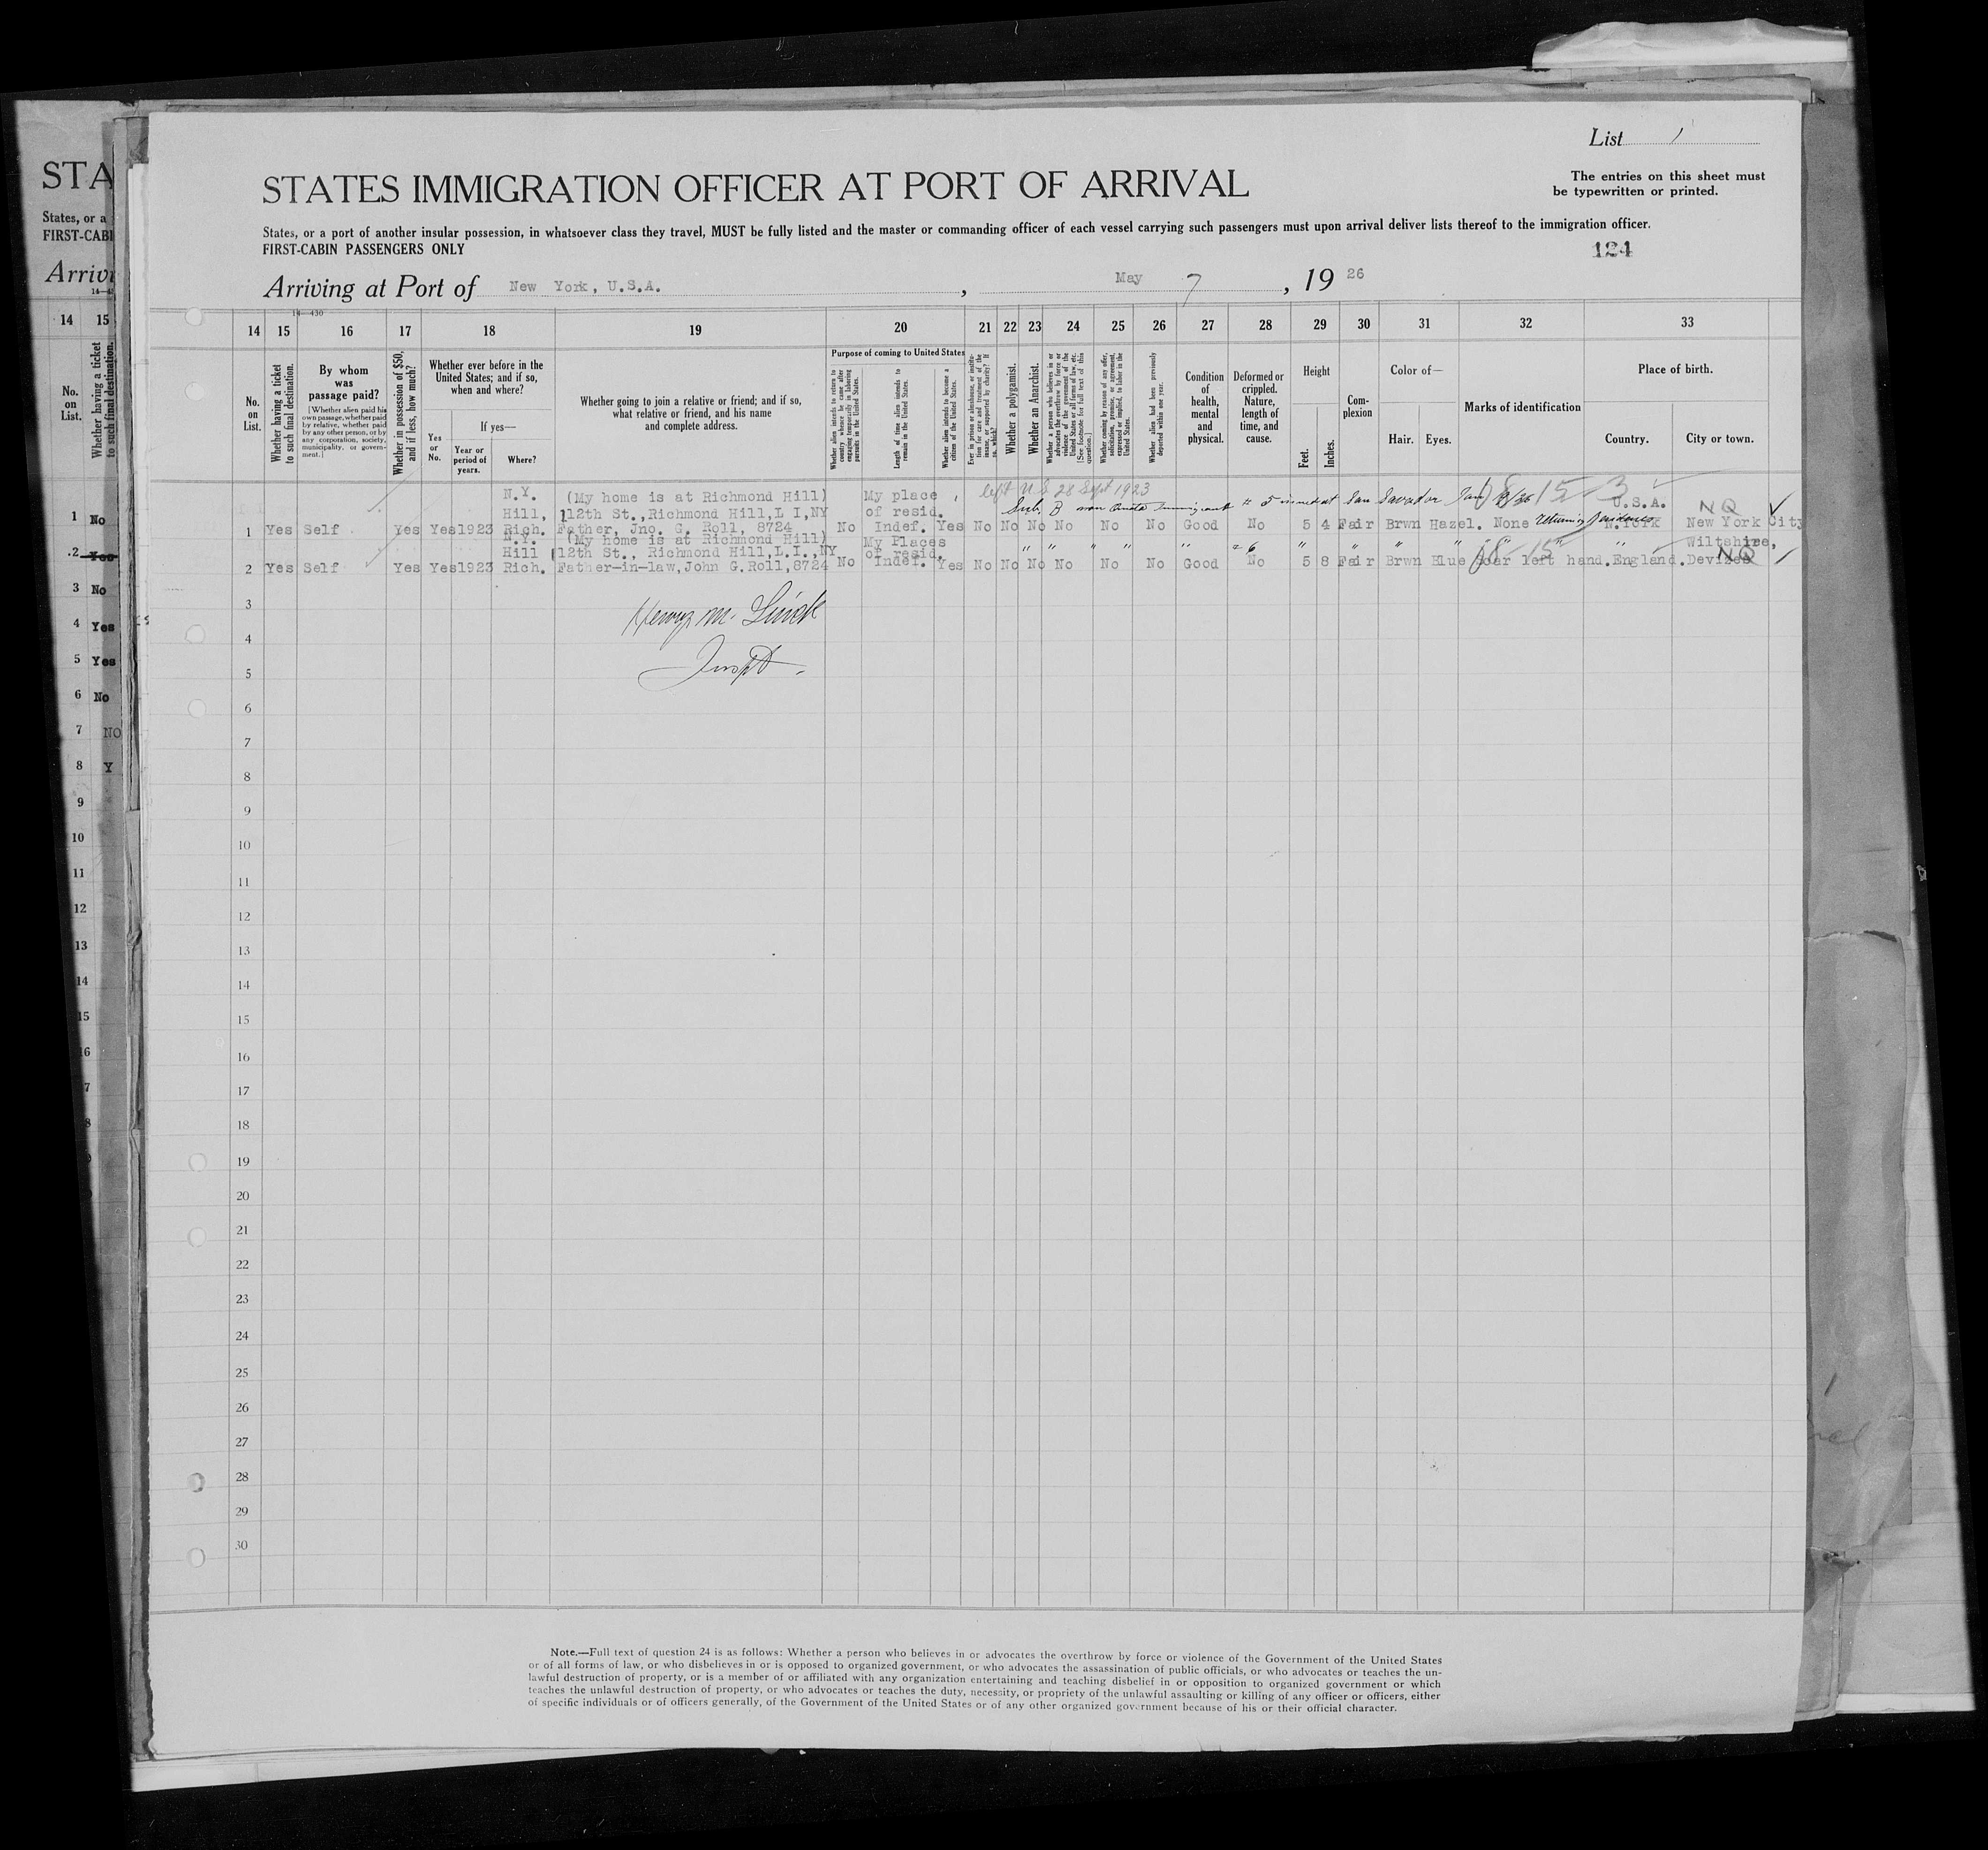 List 1
STATES IMMIGRATION OFFICER AT PORT OF ARRIVAL
The entries on this sheet must
be typewritten or printed.
States, or a port of another insular possession, in whatsoever class they travel, MUST be fully listed and the master or commanding officer of each vessel carrying such passengers must upon arrival deliver lists thereof to the immigration officer.
FIRST-CABIN PASSENGERS ONLY
124
Arriving at Port of New York, U.S.A. , May 7 , 19 26
14—430
14 15 16 17 18 19 20 21 22 23 24 25 26 27 28 29 30 31 32 33
No. on List.
Whether having a ticket to such final destination.
By whom was passage paid?
[Whether alien paid his own passage, whether paid by relative, whether paid by any other person, or by any corporation, society, municipality, or government.]
Whether in possession of $50, and if less, how much?
Whether ever before in the United States; and if so, when and where?
Yes or No.
If yes—
Year or period of years.
Where?
Whether going to join a relative or friend; and if so, what relative or friend, and his name and complete address.
Purpose of coming to United States
Whether alien intends to return to country whence he came after engaging temporarily in laboring pursuits in the United States.
Length of time alien intends to remain in the United States.
Whether alien intends to become a citizen of the United States.
Ever in prison or almshouse, or institution for care and treatment of the insane, or supported by charity? If so, which?
Whether a polygamist.
Whether an Anarchist.
Whether a person who believes in or advocates the overthrow by force or violence of the government of the United States or all forms of law, etc. [See footnote for full text of this question.]
Whether coming by reason of any offer, solicitation, promise, or agreement, expressed or implied, to labor in the United States.
Whether alien had been previously deported within one year.
Condition of health, mental and physical.
Deformed or crippled. Nature, length of time, and cause.
Height
Feet.
Inches.
Complexion
Color of—
Hair. Eyes.
Marks of identification
Place of birth.
Country. City or town.
left U S 28 Sept 1923
N.Y. (My home is at Richmond Hill) My place U.S.A. NQ
Hill, 112th St.,Richmond Hill,L I,NY of resid.
1 Yes Self Yes Yes 1923 Rich. Father, Jno. G. Roll, 8724 No Indef. Yes No No No No No No Good No 5 4 Fair Brwn Hazel. None N.York New York City
N.Y. (My home is at Richmond Hill) My Places Wiltshire,
Hill 112th St., Richmond Hill,L.I.,NY of resid. NQ
2 Yes Self Yes Yes 1923 Rich. Father-in-law,John G.Roll,8724 No Indef. Yes No No No No No No Good No 5 8 Fair Brwn Blue Scar left hand. England. Devizes
3
4
5
6
7
8
9
10
11
12
13
14
15
16
17
18
19
20
21
22
23
24
25
26
27
28
29
30
Note.—Full text of question 24 is as follows: Whether a person who believes in or advocates the overthrow by force or violence of the Government of the United States
or of all forms of law, or who disbelieves in or is opposed to organized government, or who advocates the assassination of public officials, or who advocates or teaches the un-
lawful destruction of property, or is a member of or affiliated with any organization entertaining and teaching disbelief in or opposition to organized government or which
teaches the unlawful destruction of property, or who advocates or teaches the duty, necessity, or propriety of the unlawful assaulting or killing of any officer or officers, either
of specific individuals or of officers generally, of the Government of the United States or of any other organized government because of his or their official character.